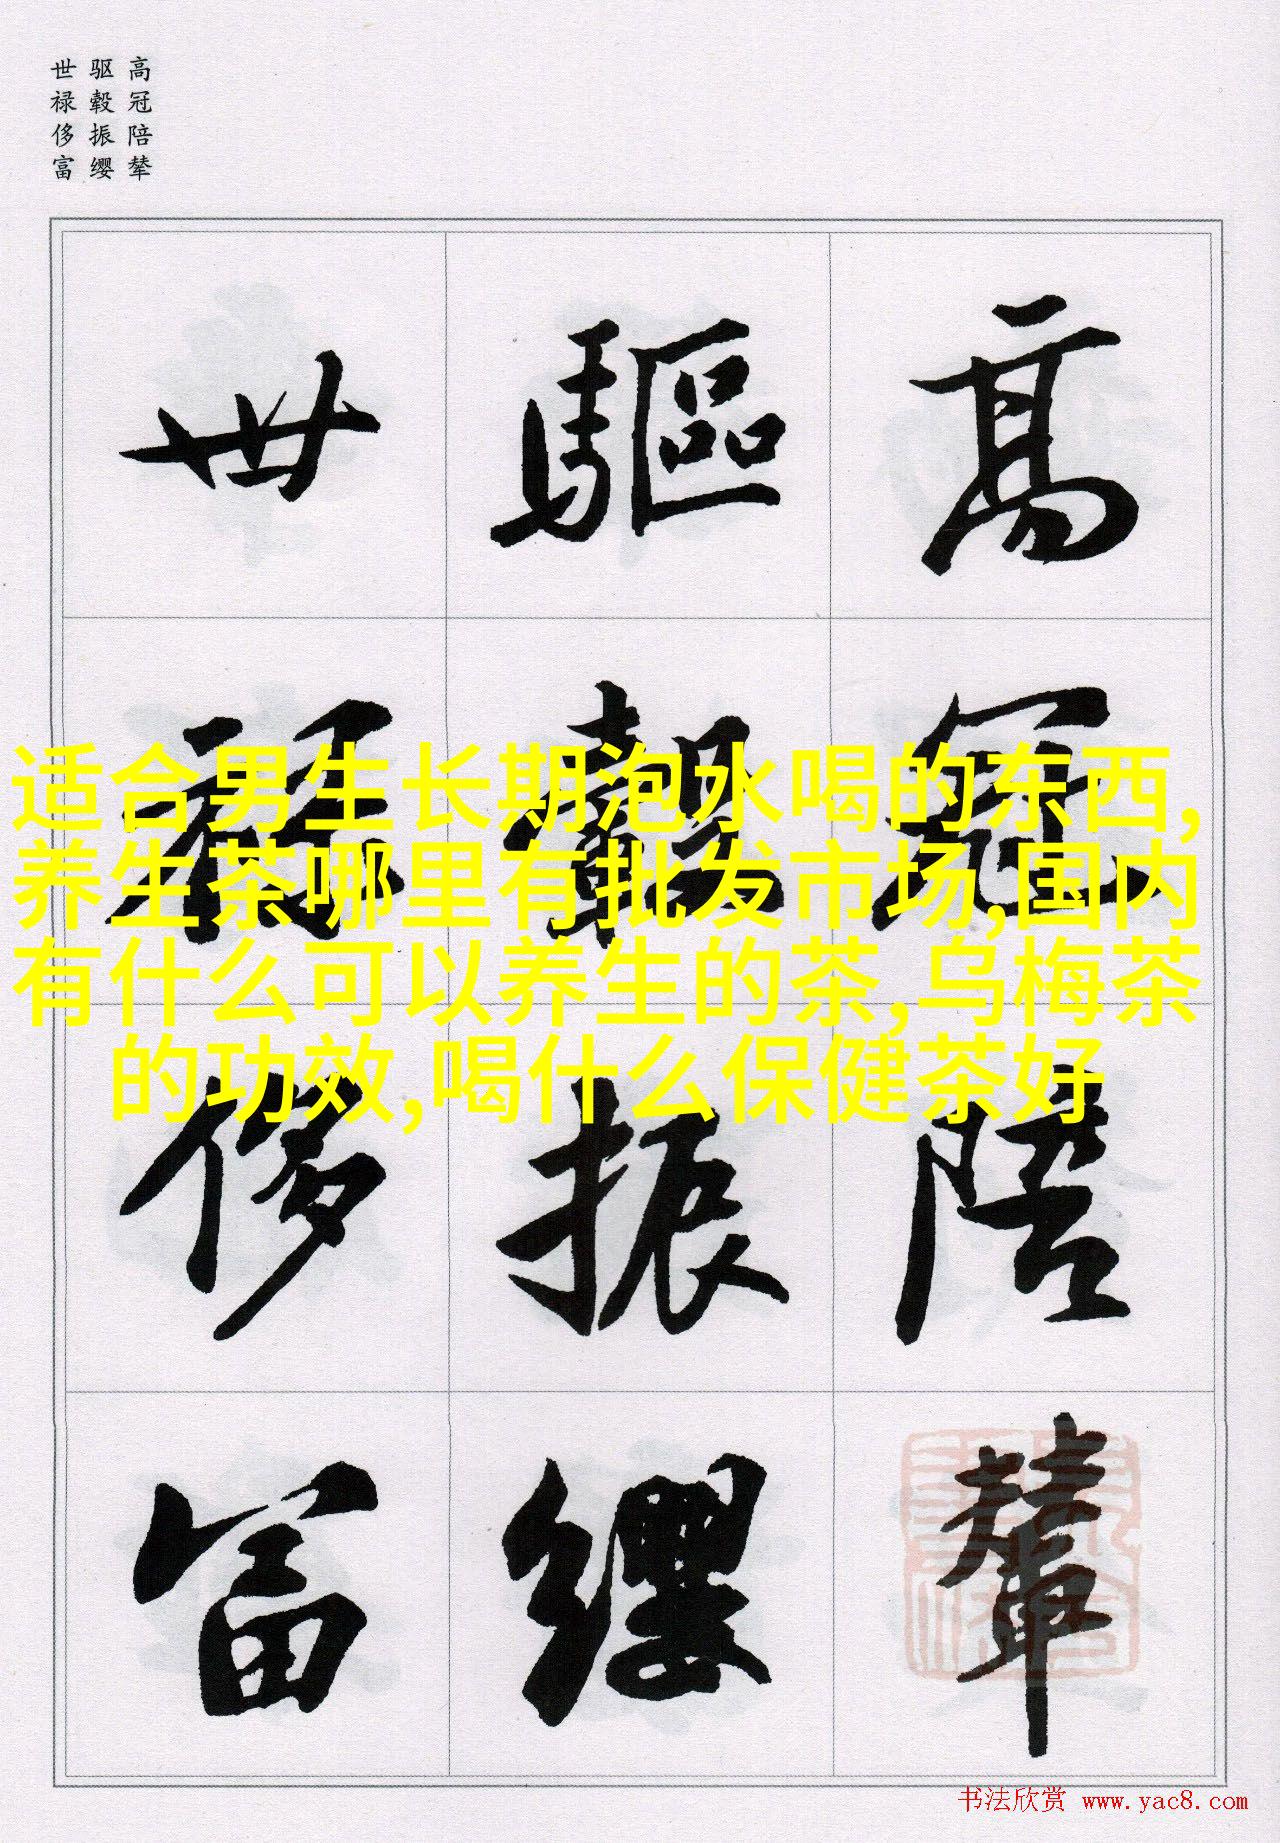 高冠陪辇
驱毂振缨
世禄侈富
高冠陪輦
驅轂振纓
世禄侈富
适合男生长期泡水喝的东西,
养生茶哪里有批发市场,国内
有什么可以养生的茶,乌梅茶
的功效,喝什么保健茶好
书法欣赏 www.yac8.com